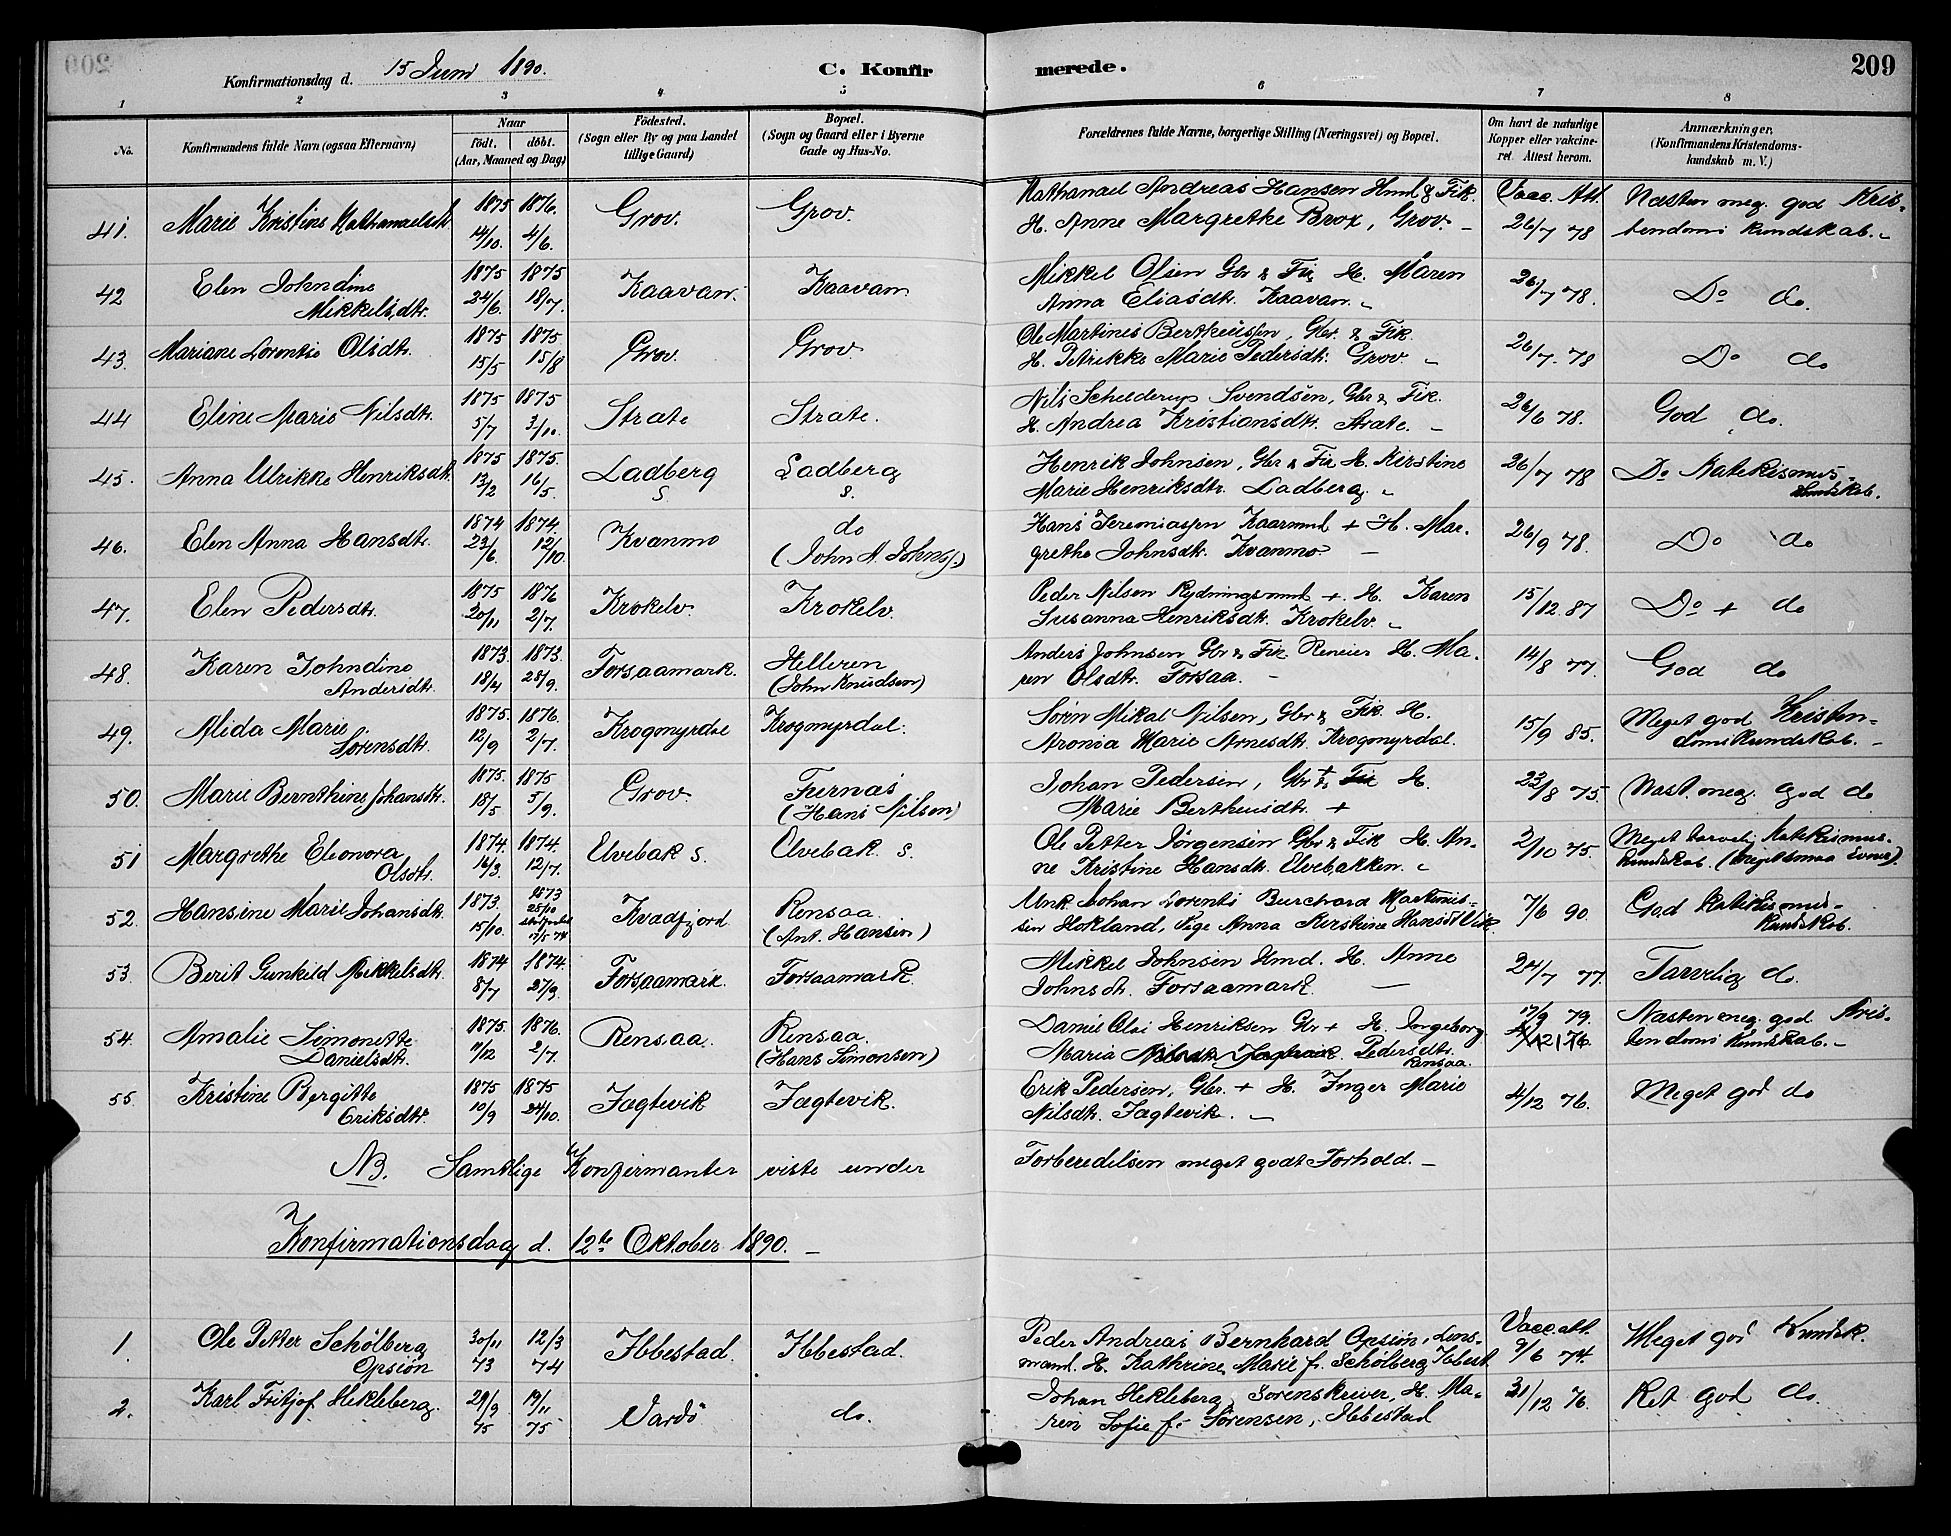 Konfirmationsdag d. 15 Juni 1890.
C. Konfirmerede.
209
1 2 3 4 5 6 7 8
No.
Konfirmandens fulde Navn (ogsaa Efternavn)
Naar
født. døbt.
(Aar, Maaned og Dag)
Fødested.
(Sogn eller By og paa Landet
tillige Gaard)
Bopæl.
(Sogn og Gaard eller i Byerne
Gade og Hus-No.
Forældrenes fulde Navne, borgerlige Stilling (Næringsvei) og Bopæl.
Om havt de naturlige
Kopper eller vakcine-
ret. Attest herom.
Anmærkninger,
(Konfirmandens Kristendoms-
kundskab m. V.)
41. Marie Kristine Nathanaelsdt. 1875 14/10. 1876. 4/6. Grov. Grov.
Nathanael Andreas Hansen Hmd & Fik.
H. Anne Margrethe Brox, Grov. –
Vacc. Att. 26/7 78
Næsten meg. god Kris-
tendomskundskab. –
42 Elen Johndine
Mikkelsdtr. 1875 24/6. 1875 18/7. Kaavan. Kaavan
Mikkel Olsen Gbr & Fik H. Maren
Anna Eliasdt. Kaavan. –
26/7 78. Do do.
43. Mariane Lorentse Olsdtr. 1875 15/5 1875 15/8 Grov. Grov
Ole Martines Bertheussen, Gbr. & Fik.
H. Petrikke Marie Pedersdt. Grov. –
26/7. 78 Do do
44 Eline Marie Nilsdtr. 1875 5/7 1875 3/10. Strate Strate.
Nils Schelderup Svendsen, Gbr & Fik.
H. Andrea Kristiansdt. Strate. –
26/6 78. God do.
45. Anna Ulrikke Henriksdt. 1875 13/2 1875. 16/5. Ladberg S Ladberg S.
Henrik Johnsen, Gbr & Fik H. Kirstine
Marie Henriksdtr. Ladberg. –
26/7 78 Do Katekismus-
kundskab.
46. Elen Anna Hansdtr. 1874 23/6. 1874. 12/10. Kvanmo do
(John A. Johns.)
Hans Jeremiassen Kaarmd + H. Mar-
grethe Johnsdt. Kvanmo. –
26/9 78. Do do
47. Elen Pedersdtr. 1875 20/11 1876 2/7. Krokelv. Krokelv.
Peder Nilsen Rydningsmd + H. Karen
Susanna Henriksdt. Krokelv. –
15/12. 87 Do + do
48. Karen Johndine
Andersdtr. 1873. 18/4 1873. 28/9. Forsaamark. Helleren
(John Knudsen)
Anders Johnsen Gbr & Fik Reneier H. Ma-
ren Olsdtr. Forsaa. –
14/8 77. God do
49. Alida Marie
Sørensdtr. 1875. 12/9 1876. 2/7. Krogmyrdal Krogmyrdal.
Sørin Mikal Nilsen, Gbr & Fik. H.
Aronia Marie Arnesdt. Krogmyrdal.
15/9 85. Meget god Kristen-
domskundskab. –
50. Marie Bernthine Johansdtr. 1875. 18/5 1875 5/9. Grov.
(Hans Nilsen)
Johan Pedersen, Gbr + & Fik H.
Marie Bertheusdtr. +
23/8 75. Næst. meg. god do
51 Margrethe Eleonora
Olsdtr. 1874. 16/3. 1874. 12/7. Elvebak S. Elvebak S.
Ole Petter Jørgensen Gbr & Fik H. An-
ne Kristine Hansdt. Elvebakken. –
2/10 75. Meget tarvelig Katekismus-
kundskab. (meget smaa Evner).
52. Hansine Marie Johansdt. 1873. 15/10. 1873 25/10 17/5 74 Kvadfjord Rensaa.
(Ant. Hansen)
Unk. Johan Lorents Burchard Martinus-
sen Hokland, Pige Anna Kirstine Hansdt Vik.
7/6 90. God Katekismus-
kundskab.
53. Berit Gunhild Mikkelsdtr. 1874 8/7 1874. 27/9. Forsaamark. Forsaamark.
Mikkel Johnsen Hmd. H. Anne
Johnsdt. Forsaamark. –
24/7 77. Tarvelig do.
54. Amalie Simonette
Danielsdt. 1875. 11/12 1876. 2/7. Rensaa. Rensaa.
(Hans Simonsen)
Daniel Olai Henriksen Gbr + H. Ingeborg
Maria Nilsdt. Jagtvik. Pedersdtr.
Rensaa.
17/9 79. Næsten meg. god Kris-
tendomskundskab. –
55. Kristine Bergitte
Eriksdtr. 1875 10/9 1875 24/10. Jagtevik Jagtevik.
Erik Pedersen, Gbr. + H. Inger Marie
Nilsdt. Jagtevik. –
4/12 76. Meget god do
NB. Samtlige Konfirmanter viste under Forberedelsen meget godt Forhold. –
Konfirmationsdag d. 12te Oktober 1890. –
1. Ole Petter Schølberg
Opsiøn 30/11 73 12/3 74 Ibbestad. Ibbestad.
Peder Andreas Bernhard Opsiøn, Lens-
mand. H. Kathrine Marie f. Schølberg Ibbest.
Vacc. att. 9/6 74. Meget god Kundsk.
2. Karl Fritjof Hekleberg. 29/9 75 14/11 75 Vardø do.
Johan Hekleberg, Sorenskriver, H. Ma-
ren Sofie f. Sørensen, Ibbestad
31/12 76. Ret god do.